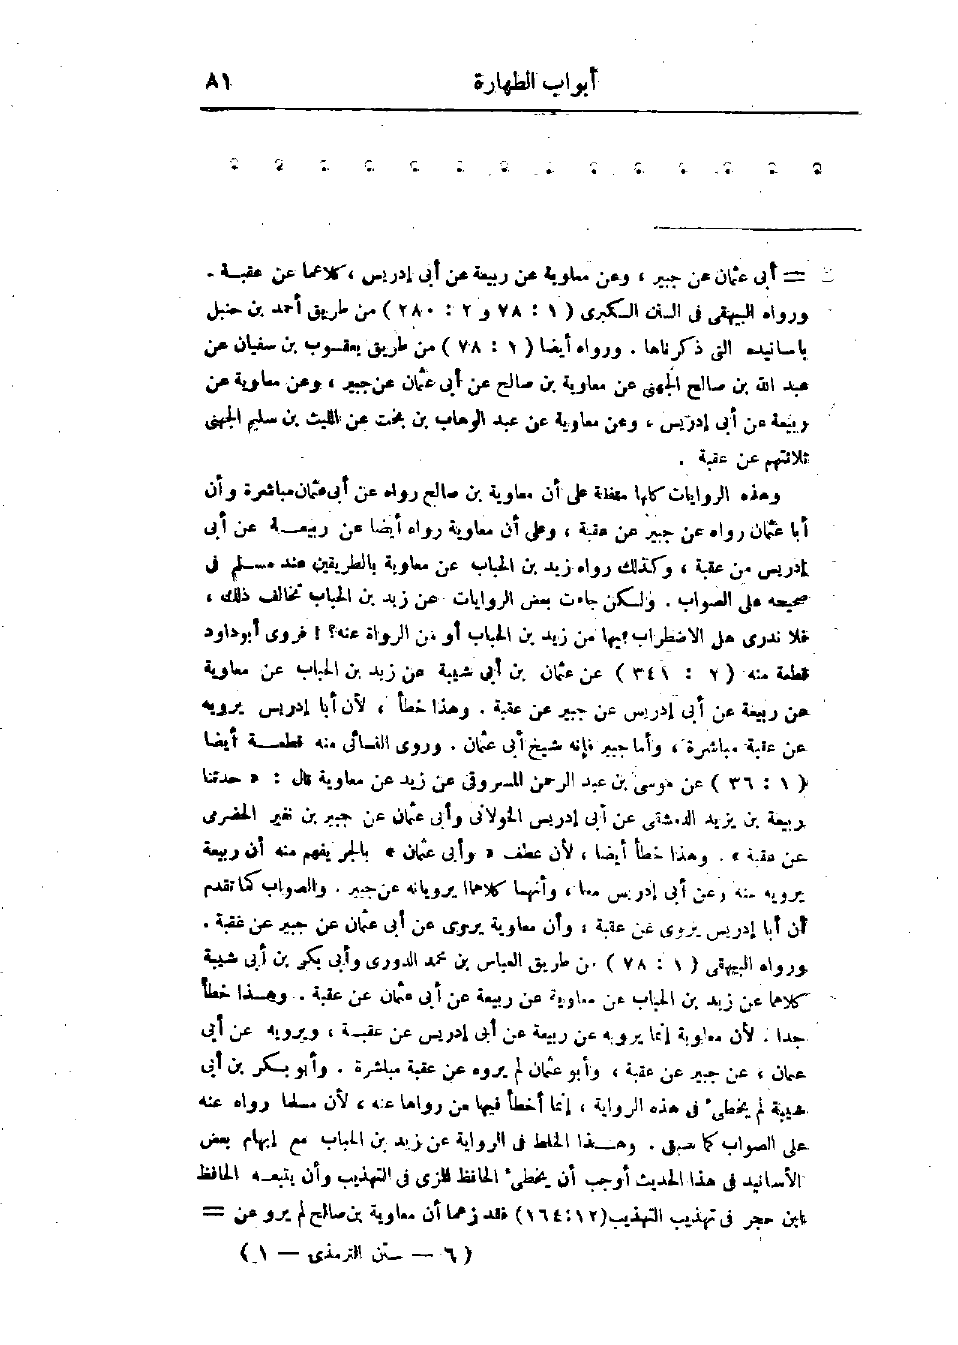 أبواب الطهارة ٨١
= أبى عثمان عن جبير ، وعن معاوية عن ربيعة عن أبى إدريس ، كلاهما عن عقبة .
ورواه البيهقى فى السنن الكبرى ( ١ : ٧٨ و ٢ : ٢٨٠ ) من طريق أحمد بن حنبل
بأسانيده التى ذكرناها . ورواه أيضا ( ١ : ٧٨ ) من طريق يعقوب بن سفيان عن
عبد الله بن صالح الجهنى عن معاوية بن صالح عن أبى عثمان عن جبير ، وعن معاوية عن
ربيعة عن أبى إدريس ، وعن معاوية عن عبد الوهاب بن بخت عن الليث بن سليم الجهنى
ثلاثتهم عن عقبة .
وهذه الروايات كلها متفقة على أن معاوية بن صالح رواه عن أبى عثمان مباشرة وأن
أبا عثمان رواه عن جبير عن عقبة ، وعلى أن معاوية رواه أيضا عن ربيعة عن أبى
إدريس عن عقبة ، وكذلك رواه زيد بن الحباب عن معاوية بالطريقين عند مسلم فى
صحيحه على الصواب . ولكن جاءت بعض الروايات عن زيد بن الحباب تخالف ذلك ،
فلا ندرى هل الاضطراب فيها من زيد بن الحباب أو من الرواة عنه؟ ! فروى أبو داود
قطعة منه ( ٢ : ٣٤١ ) عن عثمان بن أبى شيبة عن زيد بن الحباب عن معاوية
عن ربيعة عن أبى إدريس عن جبير عن عقبة . وهذا خطأ ، لأن أبا إدريس يرويه
عن عقبة مباشرة ، وأما جبير فإنه شيخ أبى عثمان . وروى النسائى منه قطعة أيضا
( ١ : ٣٦ ) عن موسى بن عبد الرحمن المسروقى عن زيد عن معاوية قال : « حدثنا
ربيعة بن يزيد الدمشقى عن أبى إدريس الخولانى وأبى عثمان عن جبير بن نفير الحضرمى
عن عقبة » . وهذا خطأ أيضا ، لأن عطف « وأبى عثمان » بالجر يفهم منه أن ربيعة
يرويه عنه وعن أبى إدريس معا ، وأنهما كلاهما يرويانه عن جبير . والصواب كما تقدم
أن أبا إدريس يروى عن عقبة ، وأن معاوية يروى عن أبى عثمان عن جبير عن عقبة .
ورواه البيهقى ( ١ : ٧٨ ) من طريق العباس بن محمد الدورى وأبى بكر بن أبى شيبة
كلاهما عن زيد بن الحباب عن معاوية عن ربيعة عن أبى عثمان عن عقبة . وهذا خطأ
جدا . لأن معاوية إنما يرويه عن ربيعة عن أبى إدريس عن عقبة ، ويرويه عن أبى
عثمان ، عن جبير عن عقبة ، وأبو عثمان لم يروه عن عقبة مباشرة . وأبو بكر بن أبى
شيبة لم يخطىء فى هذه الرواية ، إنما أخطأ فيها من رواها عنه ، لأن مسلما رواه عنه
على الصواب كما سبق . وهذا الخلط فى الرواية عن زيد بن الحباب مع إبهام بعض
الأسانيد فى هذا الحديث أوجب أن يخطىء الحافظ المزى فى التهذيب وأن يتبعه الحافظ
ابن حجر فى تهذيب التهذيب (١٢:١٦٤) فقد زعما أن معاوية بن صالح لم يرو عن =
( ٦ — سنن الترمذى — ١ )